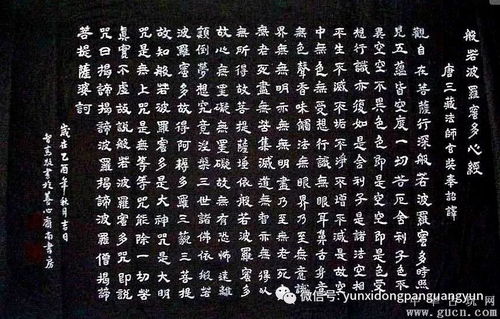 般若波羅蜜多心經
唐三藏法師玄奘奉詔譯
觀自在菩薩行深般若波羅蜜多時照
見五蘊皆空度一切苦厄舍利子色不
異空空不異色色即是空空即是色受
想行識亦復如是舍利子是諸法空相
不生不滅不垢不淨不增不減是故空
中無色無受想行識無眼耳鼻舌身意
無色聲香味觸法無眼界乃至無意識
界無無明亦無無明盡乃至無老死亦
無老死盡無苦集滅道無智亦無得以
無所得故菩提薩埵依般若波羅蜜多
故心無罣礙無罣礙故無有恐怖遠離
顛倒夢想究竟涅槃三世諸佛依般若
波羅蜜多故得阿耨多羅三藐三菩提
故知般若波羅蜜多是大神咒是大明
咒是無上咒是無等等咒能除一切苦
真實不虛故說般若波羅蜜多咒即說
咒曰揭諦揭諦波羅揭諦波羅僧揭諦
菩提薩婆訶
歲在乙酉年秋月吉日
敬書於養心齋南書房
微信号: yunxidongpanguangyun
www.gucn.com